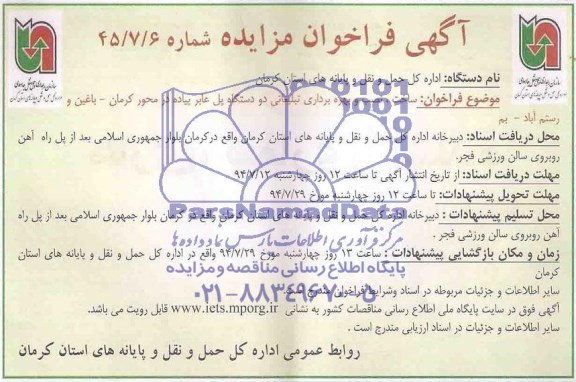 آگهی فراخوان مزایده شماره ۴۵/۷/۶
نام دستگاه: اداره کل حمل و نقل و پایانه های استان کرمان
موضوع فراخوان: ساخت و نصب و بهره برداری تبلیغاتی دو دستگاه پل عابر پیاده در محور کرمان - باغین و
رستم آباد - بم
محل دریافت اسناد: دبیرخانه اداره کل حمل و نقل و پایانه های استان کرمان واقع درکرمان بلوار جمهوری اسلامی بعد از پل راه آهن
روبروی سالن ورزشی فجر.
مهلت دریافت اسناد: از تاریخ انتشار آگهی تا ساعت ۱۲ روز چهارشنبه ۹۴/۷/۱۲
مهلت تحویل پیشنهادات: تا ساعت ۱۲ روز چهارشنبه مورخ ۹۴/۷/۲۹
محل تسلیم پیشنهادات : دبیرخانه اداره کل حمل و نقل و پایانه های استان کرمان واقع در کرمان بلوار جمهوری اسلامی بعد از پل راه
آهن روبروی سالن ورزشی فجر .
زمان و مکان بازگشایی پیشنهادات : ساعت ۱۳ روز چهارشنبه مورخ ۹۴/۷/۲۹ واقع در اداره کل حمل و نقل و پایانه های استان
کرمان
سایر اطلاعات و جزئیات مربوطه در اسناد وشرایط فراخوان مندرج است.
آگهی فوق در سایت پایگاه ملی اطلاع رسانی مناقصات کشور به نشانی www.iets.mporg.ir قابل رویت می باشد.
سایر اطلاعات و جزئیات در اسناد ارزیابی مندرج است .
روابط عمومی اداره کل حمل و نقل و پایانه های استان کرمان
ParsNamadData
مرکز فرآوری اطلاعات پارس نماد داده ها
پایگاه اطلاع رسانی مناقصه و مزایده
۰۲۱-۸۸۳۴۹۶۷۰-۵